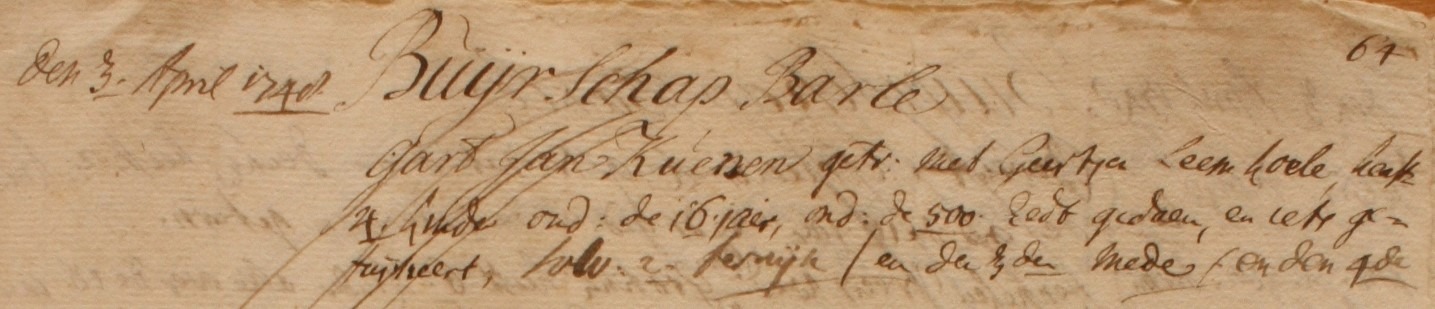 den 3. April 1748. Buijrschap Barle 64
Gart Jan Kuenen getr: met Geertjen Leemhoele, heeft
4. kinder ond: de 16 jaer, ond: de 500. Eedt gedaen, en iets ge=
solv. 2. termijn / en den 3den mede / en den 4de